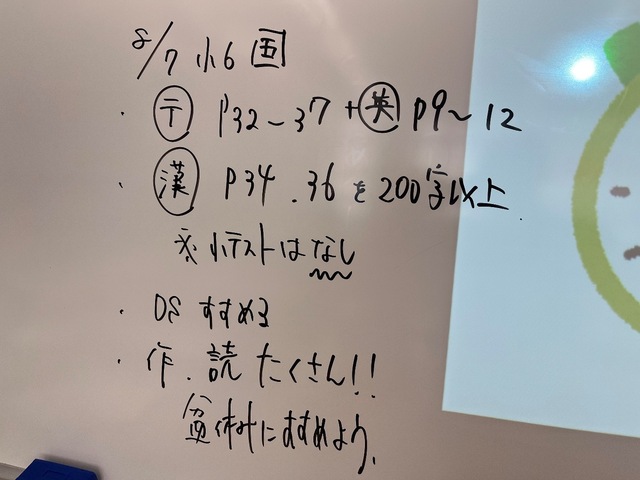 8/7 小6 国
・㋢ P32~37 + 英 P9~12
・漢 P34.36を200字以上
※小テストはなし
・DSすすめる
・作.読 たくさん!!
盆休みにすすめよう.